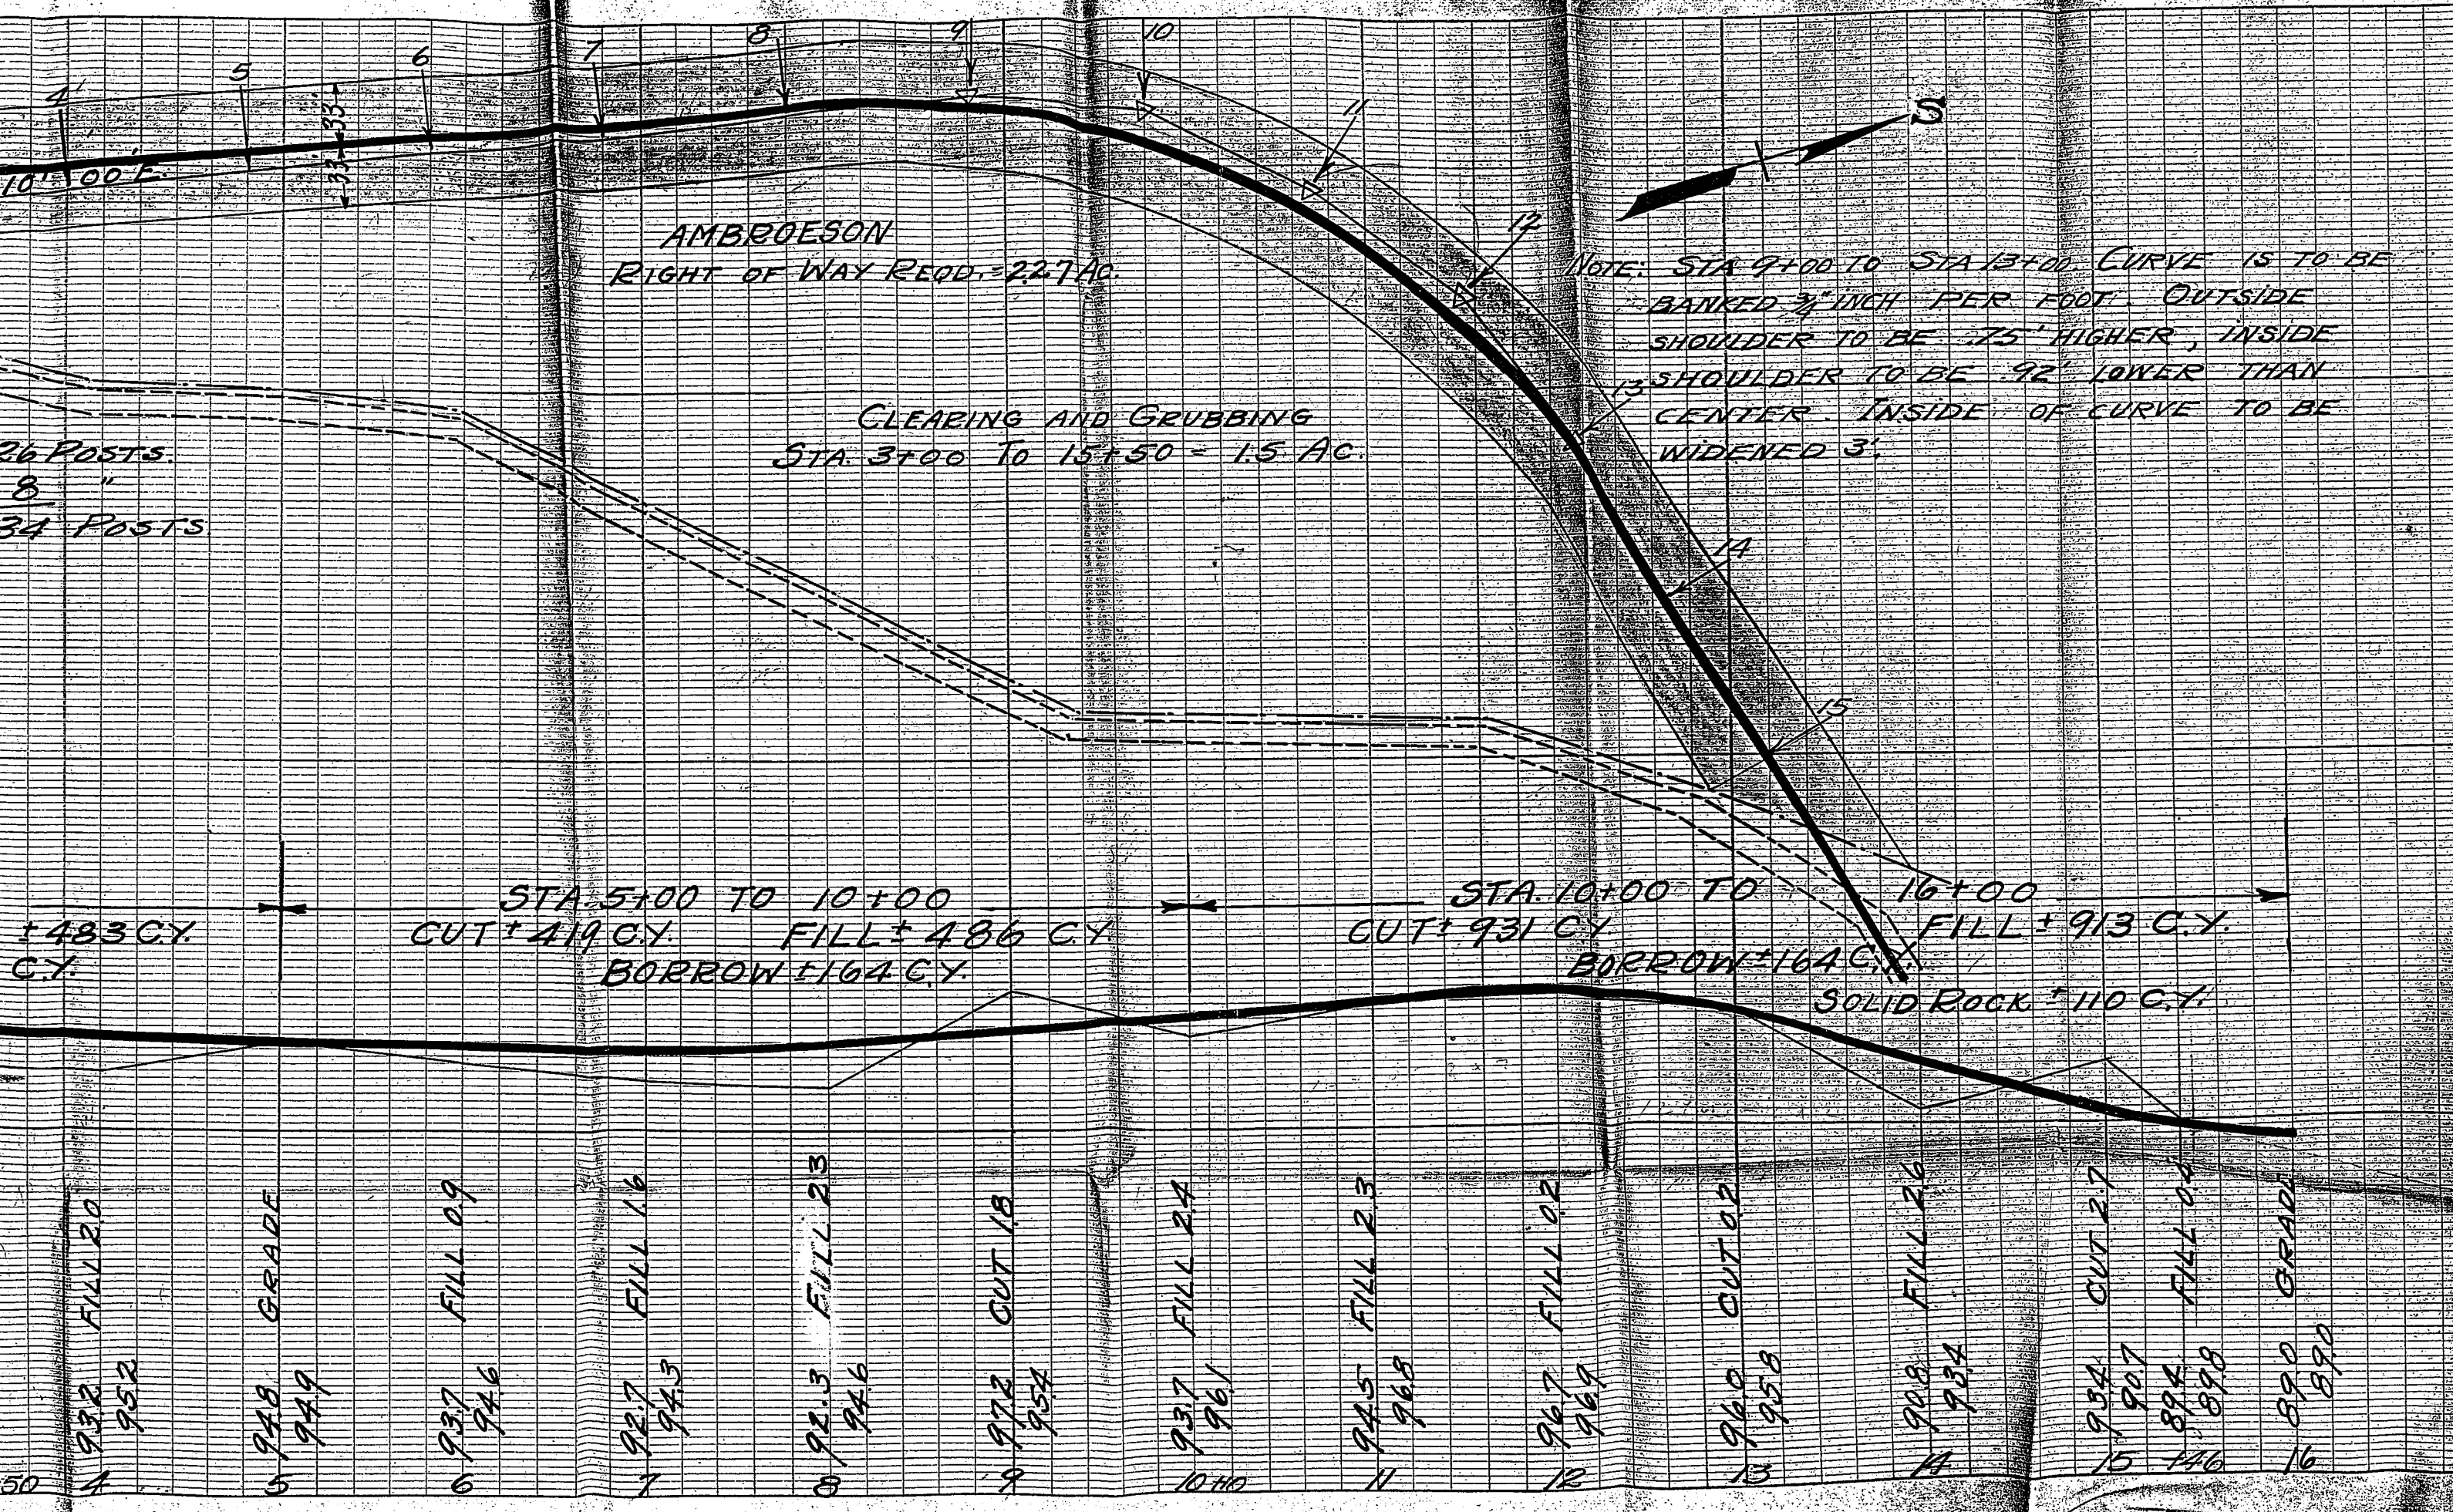 4
5
6
7
8
9
10
11
12
13
14
15
S
33'
33'
10' 00" E.
AMBROESON
RIGHT OF WAY REQD. = 2.27 AC.
NOTE: STA 9+00 TO STA 13+00 CURVE IS TO BE
BANKED 3/4" INCH PER FOOT. OUTSIDE
SHOULDER TO BE .75' HIGHER, INSIDE
SHOULDER TO BE .92' LOWER THAN
CENTER. INSIDE OF CURVE TO BE
WIDENED 3'.
CLEARING AND GRUBBING
STA. 3+00 TO 15+50 = 1.5 AC.
26 POSTS.
8 "
34 POSTS
STA. 5+00 TO 10+00
CUT ± 419 C.Y. FILL ± 486 C.Y.
BORROW ± 164 C.Y.
± 483 C.Y.
C.Y.
STA. 10+00 TO 16+00
CUT ± 931 C.Y. FILL ± 913 C.Y.
BORROW ± 164 C.Y.
SOLID ROCK ± 110 C.Y.
FILL 2.0
GRADE
FILL 0.9
FILL 1.6
FILL 2.3
CUT 1.8
FILL 2.4
FILL 2.3
FILL 0.2
CUT 0.2
FILL 2.6
CUT 2.7
FILL 0.4
GRADE
93.2
95.2
94.8
94.9
93.7
94.6
92.7
94.3
92.3
94.6
97.2
95.4
93.7
96.1
94.5
96.8
96.7
96.9
96.0
95.8
90.8
93.4
93.4
90.7
89.4
89.8
89.0
89.0
50 4 5 6 7 8 9 10+10 11 12 13 14 15 +46 16